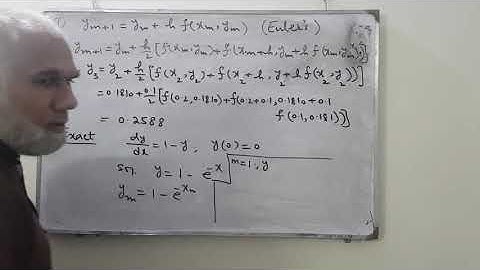 1) y_{m+1} = y_m + h f(x_m, y_m) (Euler's)
y_{m+1} = y_m + h/2 [f(x_m, y_m) + f(x_m+h, y_m+h f(x_m, y_m))]
y_3 = y_2 + h/2 [f(x_2, y_2) + f(x_2+h, y_2+h f(x_2, y_2))]
= 0.1810 + 0.1/2 [f(0.2, 0.1810) + f(0.2+0.1, 0.1810 + 0.1
f(0.1, 0.181))]
= 0.2588
Exact dy/dx = 1-y, y(0) = 0
Son. y = 1 - e^{-x}
m=1, y
y_m = 1 - e^{-x_m}